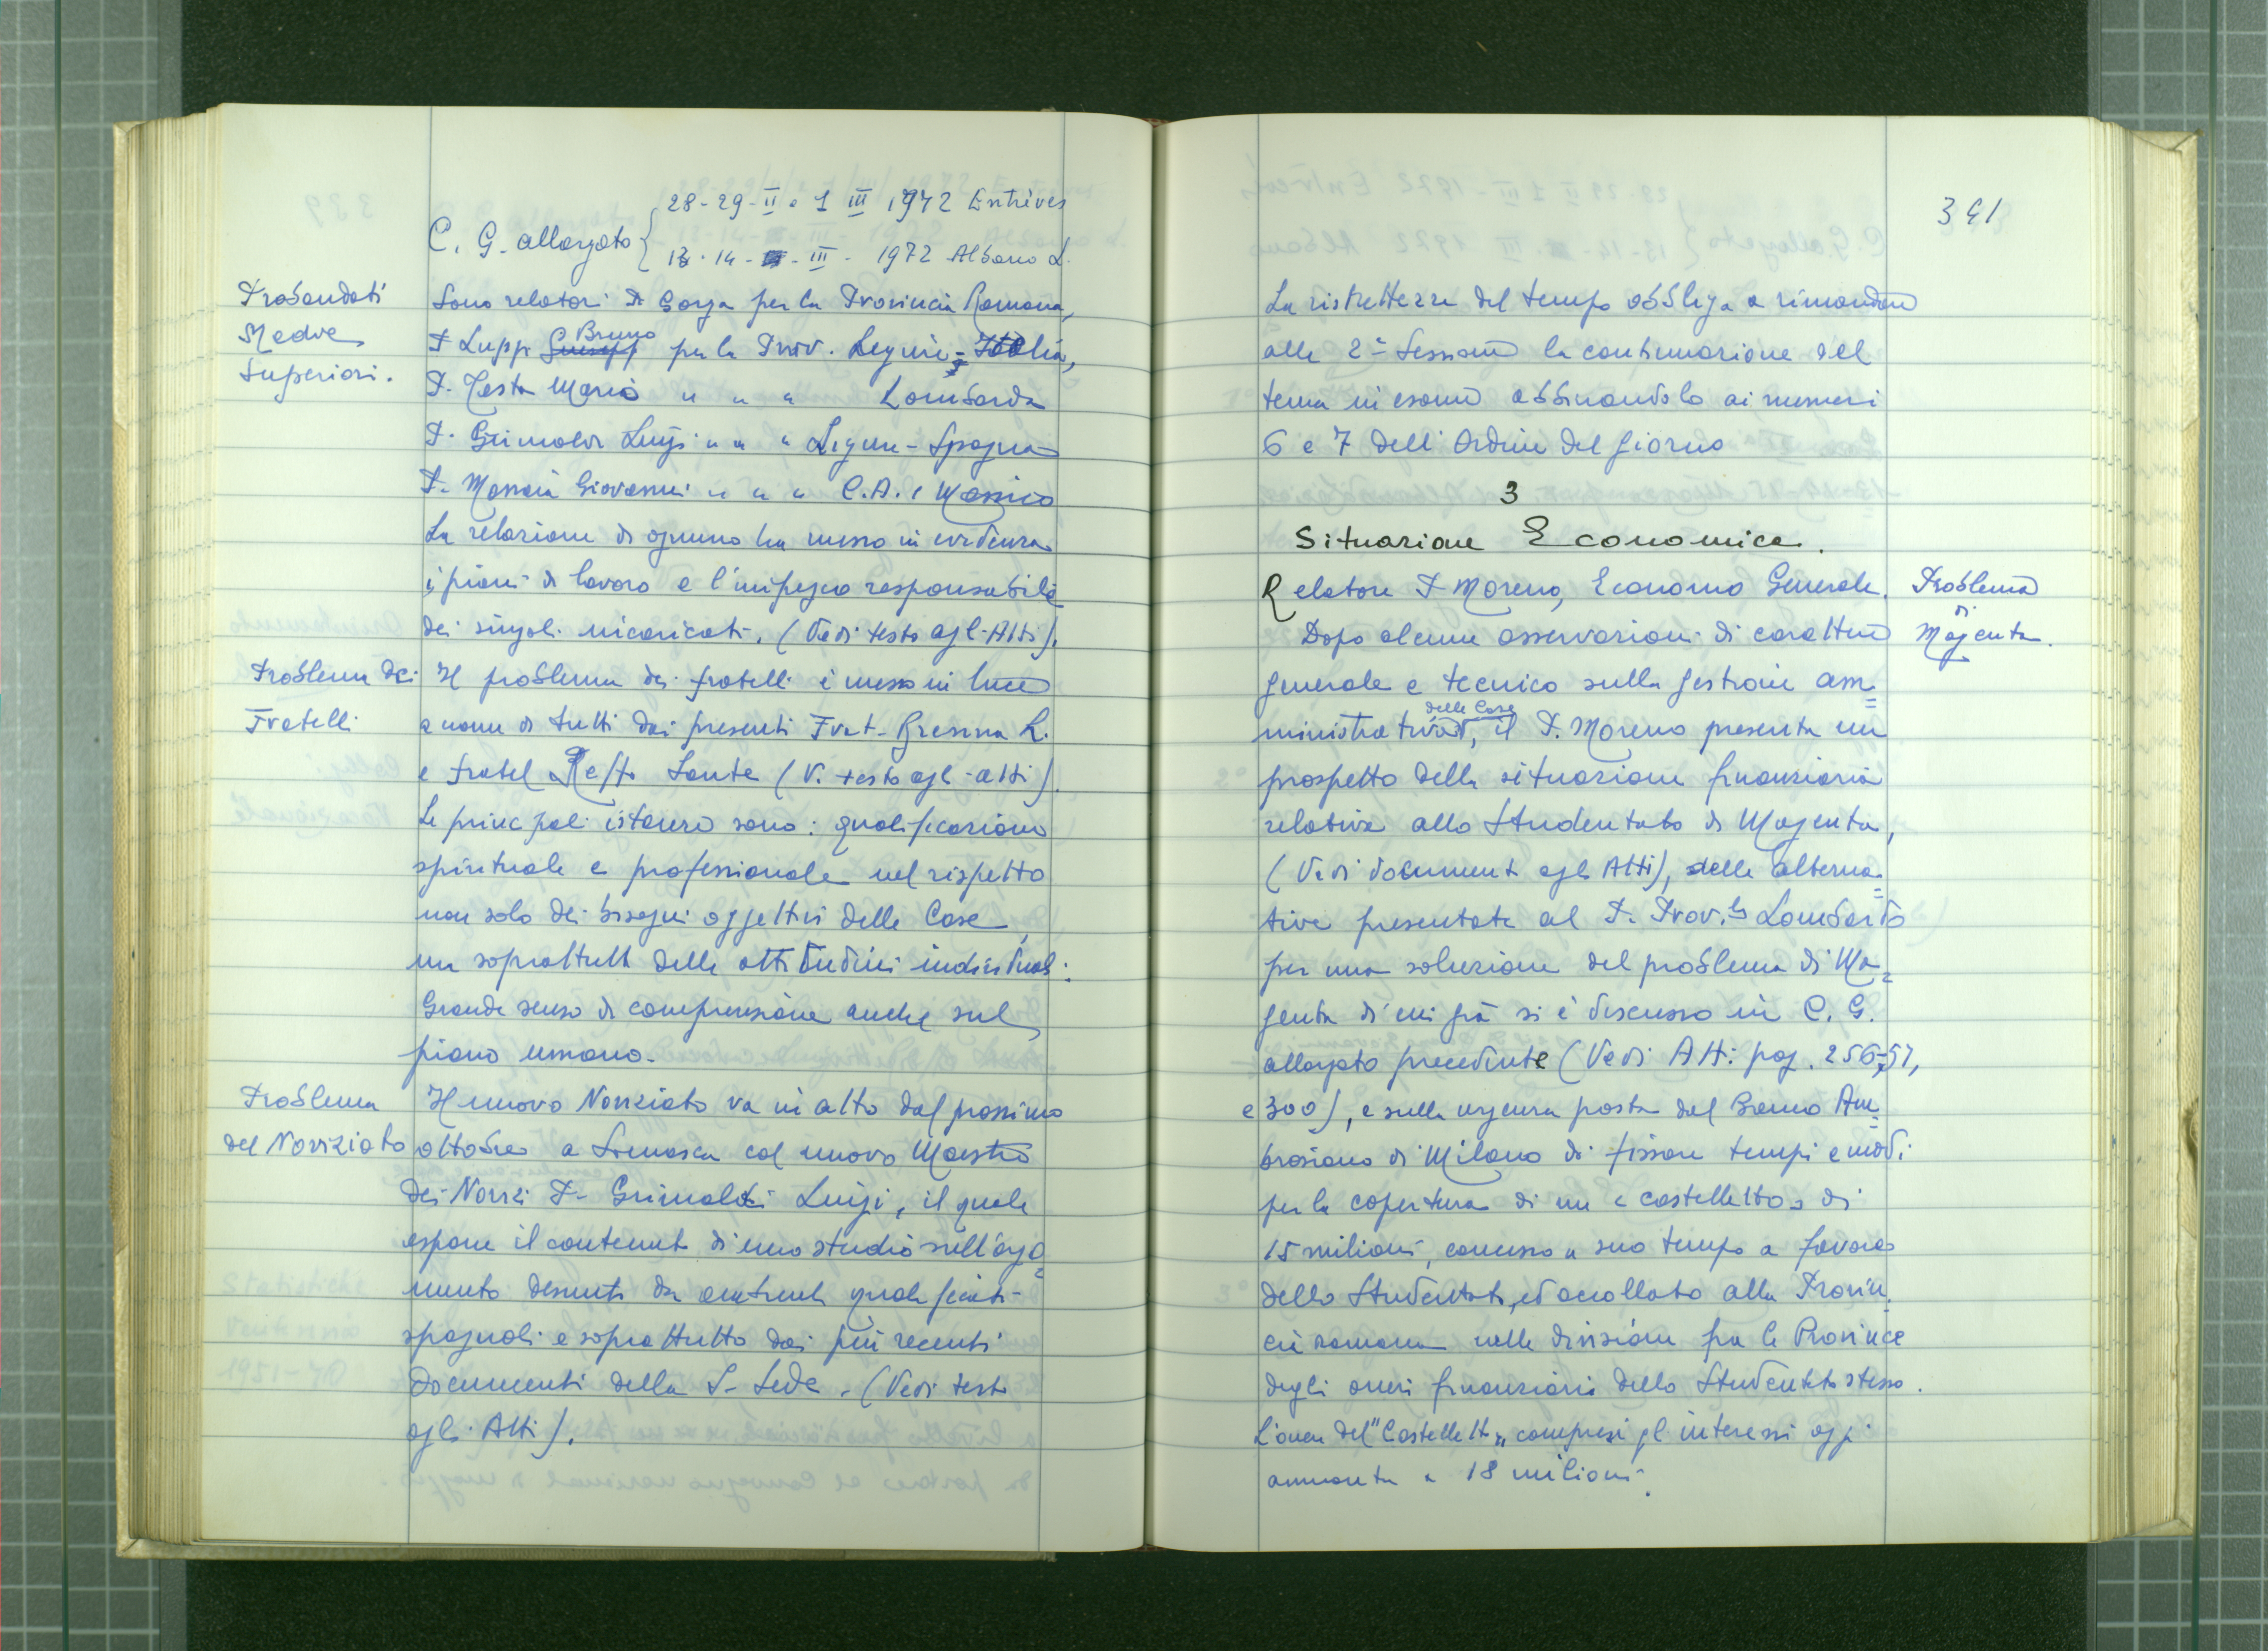 28-29-II e 1 III 1972 Entrèves
C. G. allargato {
13-14- III - 1972 Albano L.
Probandati
Medie
Superiori.
Sono relatori P. Gorga per la Provincia Romana,
P. Luppi Bruno per la Prov. Ligure-Italia,
P. Testa Mario " " " Lombarda
P. Grimaldi Luigi " " " Ligure-Spagna
P. Massaia Giovanni " " " C.A. e Messico
La relazione di ognuno ha messo in evidenza
i piani di lavoro e l'impegno responsabile
dei singoli incaricati. (Vedi testo agl. Atti).
Problema dei
Fratelli
Il problema dei fratelli è messo in luce
a nome di tutti dai presenti Frat. Brenna L.
e fratel Sante (V. testo agl. atti).
Le principali istanze sono: qualificazione
spirituale e professionale nel rispetto
non solo dei bisogni oggettivi delle Case,
ma soprattutto delle attitudini individuali.
Grande senso di comprensione anche sul
piano umano.
Problema
del Noviziato
Il nuovo Noviziato va in atto dal prossimo
ottobre a Somasca col nuovo Maestro
dei Novizi P. Grimaldi Luigi, il quale
espone il contenuto di uno studio sull'argo=
mento desunto da autrevoli qualificati
spagnoli e soprattutto dai più recenti
Documenti della S. Sede. (Vedi testo
agli Atti).
341
La ristrettezza del tempo obbliga a rimandare
alla 2ª Sessione la continuazione del
tema in esame abbinandolo ai numeri
6 e 7 dell'Ordine del giorno
3
Situazione Economica.
Relatore P. Moreno, Economo Generale.
Problema
di
Magenta.
Dopo alcune osservazioni di carattere
generale e tecnico sulla gestione am=
ministrativa delle Case, il P. Moreno presenta un
prospetto della situazione finanziaria
relativa allo Studentato di Magenta,
(Vedi documenti agli Atti), delle alterna=
tive presentate al P. Prov.le Lombardo
per una soluzione del problema di Ma=
genta di cui già si è discusso in C. G.
allargato precedente (Vedi Atti pag. 256-57,
e 300), e sulla urgenza posta dal Banco Am=
brosiano di Milano di fissare tempi e modi
per la copertura di un «castelletto» di
15 milioni, concesso a suo tempo a favore
dello Studentato, ed accollato alla Provin=
cia romana nella divisione fra le Province
degli oneri finanziari dello Studentato stesso.
L'onere del "Castelletto" compresi gli interessi oggi
ammonta a 18 milioni.